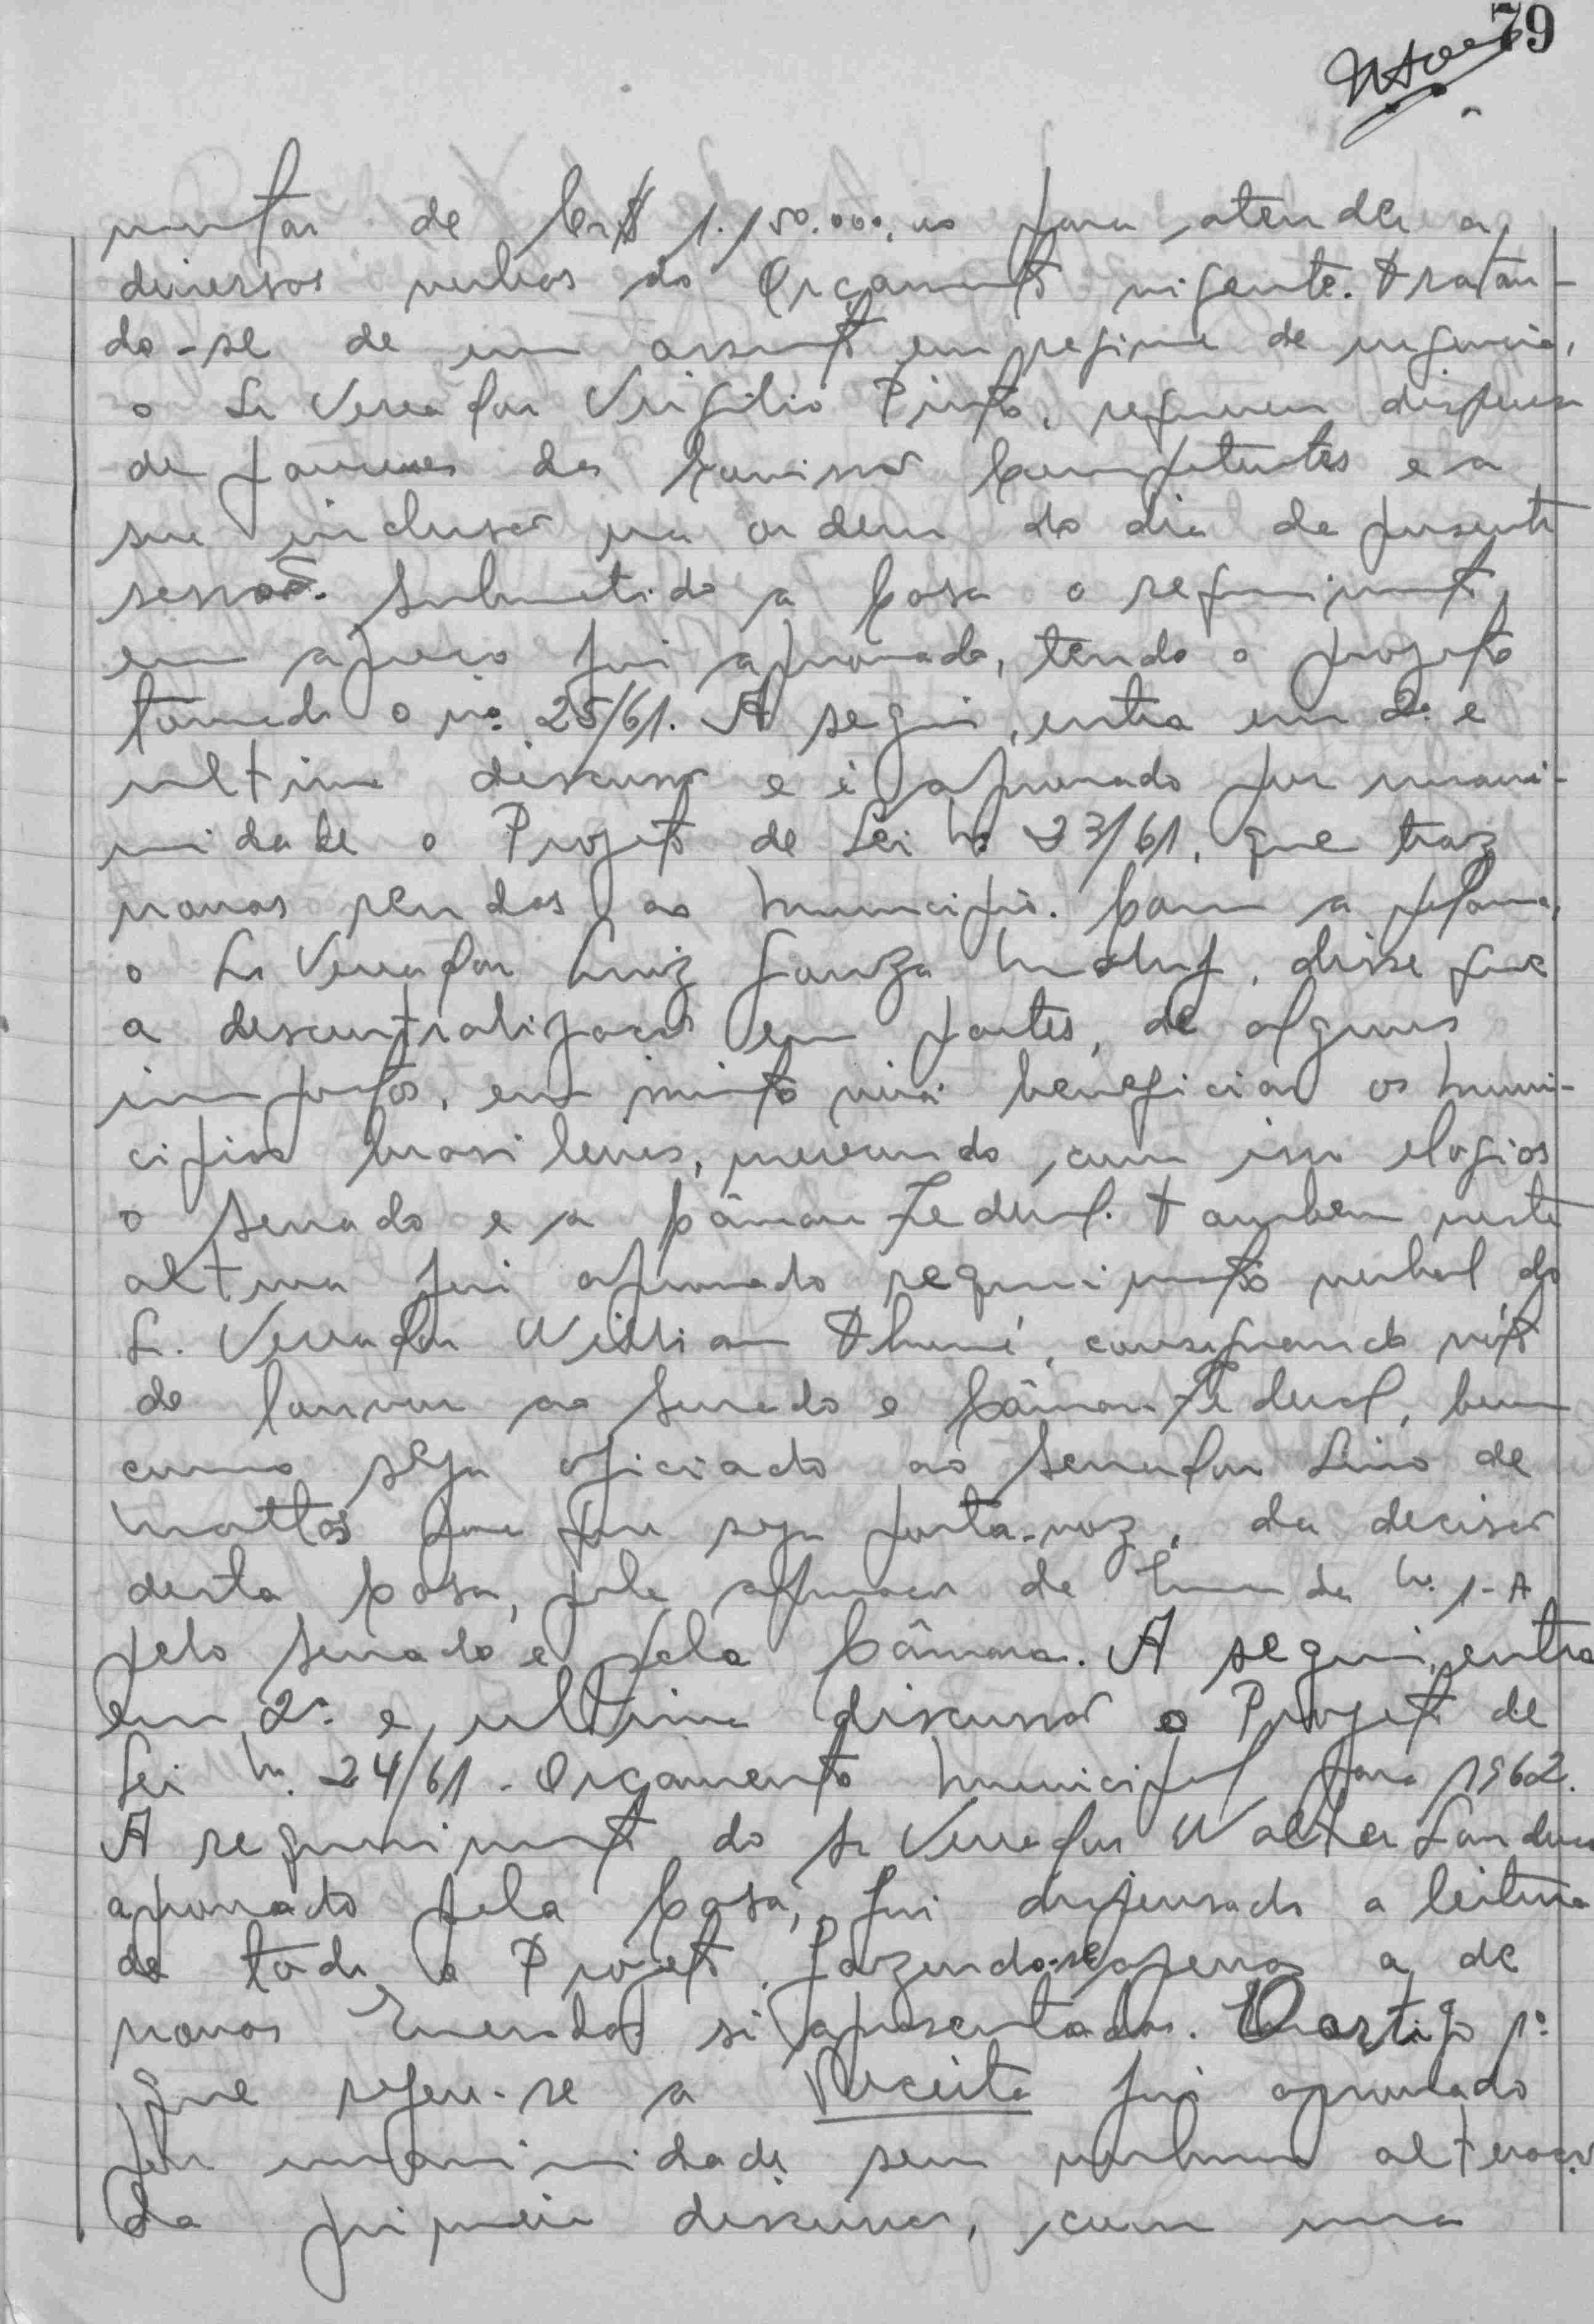 79
mentar de Cr$ 1.150.000,00 para atender a
diversos verbas do Orçamento vigente. Tratan-
do-se de um assunto em regime de urgencia,
o Sr Vereador Virgilio Pinto, requereu dispensa
de pareceres das Comissões Competentes e a
sua inclusão na ordem do dia da presente
sessão. Submetido a Casa o requerimento
em apreço foi aprovado, tendo o projeto
tomado o nº 25/61. A seguir, entra em 2ª e
ultima discussão e é aprovado por unani-
midade o Projeto de Lei Nº 23/61, que traz
novas rendas ao Municipio. Com a palavra,
o Sr Vereador Luiz Gonzaga disse que
a descentralização em partes, de alguns
impostos, em muito virá beneficiar os Muni-
cipios brasileiros, merecendo com isso elogios
o Senado e a Câmara Federal. Tambem nesta
altura foi aprovado requerimento verbal do
Sr. Vereador Willian Thomé, consignando voto
de louvor ao Senado e Câmara Federal, bem
como seja oficiado ao Senador Lino de
Mattos para que seja porta-voz, da decisão
desta Casa, pela aprovação da Emenda Nº 1-A
pelo Senado e pela Câmara. A seguir, entra
em 2ª e ultima discussão o Projeto de
Lei Nº 24/61 - Orçamento Municipal para 1962.
A requerimento do Sr Vereador Walter
aprovado pela Casa, foi dispensado a leitura
de todo o Projeto, fazendo-se apenas a de
novas Emendas si apresentadas. O artigo 1º
que refere-se a Receita foi aprovado
por unanimidade sem nenhuma alteração
da primeira discussão, com uma